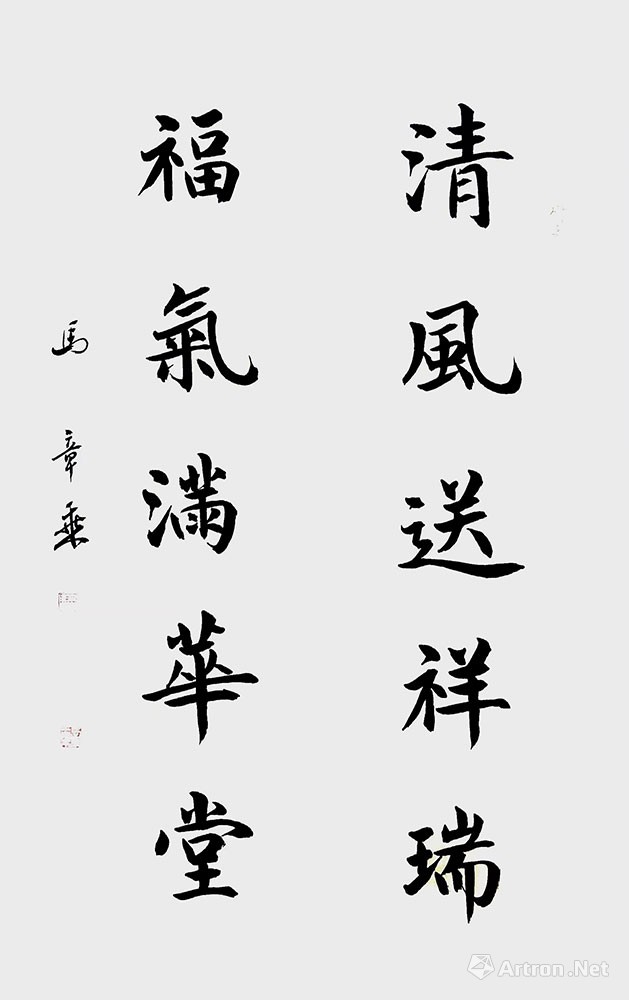 清風送祥瑞
福氣滿華堂
馬章乘
Artron.Net